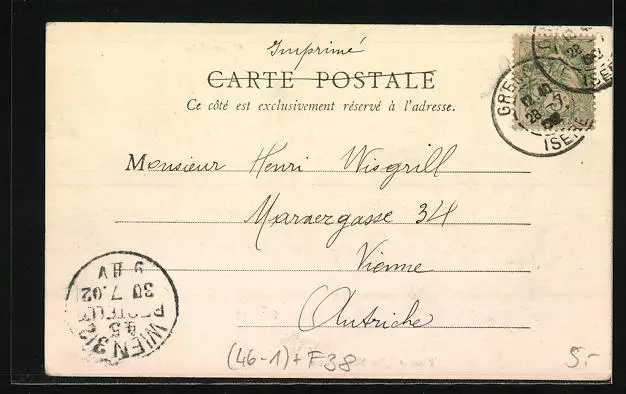 Imprimé
CARTE POSTALE
Ce côté est exclusivement réservé à l'adresse.
GRENOBLE
ISERE
28
ISERE
Monsieur Henri Wisgrill
Marxergasse 34
Vienne
Autriche
WIEN 3/2
BESTELLT
30 7.02
9 V.
(46-1)+F38
5.-